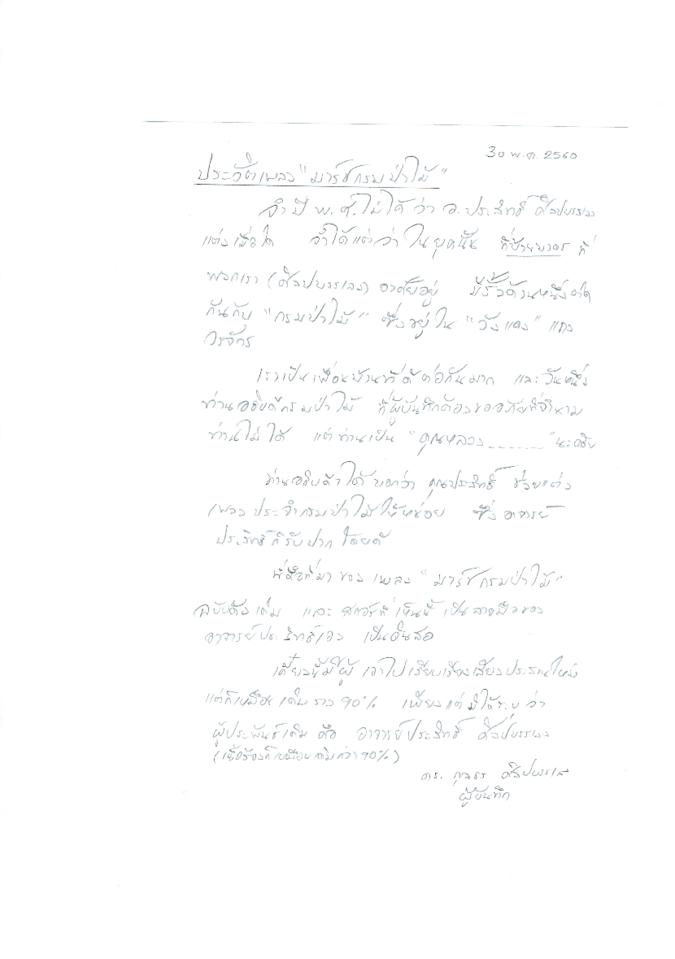 30 พ.ค. 2560
ประวัติเพลง "มาร์ชกรมป่าไม้"
จำปี พ.ศ. ไม่ได้ ว่า อ.ประสิทธิ์ ศิลปบรรเลง
แต่งเมื่อใด จำได้แต่ว่า ในยุคนั้น ที่บ้านบาตร ที่
พวกเรา (ศิลปบรรเลง) อาศัยอยู่ มีรั้วด้านหนึ่งติด
กันกับ "กรมป่าไม้" ซึ่งอยู่ใน "วังแดง" แถว
วรจักร
เราเป็นเพื่อนบ้านที่ดีต่อกันมาก และวันหนึ่ง
ท่านอธิบดีกรมป่าไม้ ที่ผู้บันทึกต้องขออภัยที่จำนาม
ท่านไม่ได้ แต่ท่านเป็น "คุณหลวง......."
ท่านอธิบดีฯ ได้บอกว่า คุณประสิทธิ์ ช่วยแต่ง
เพลงประจำกรมป่าไม้ให้หน่อย ซึ่งอาจารย์
ประสิทธิ์ก็รับปากโดยดี
นี่คือที่มาของเพลง "มาร์ชกรมป่าไม้"
ฉบับดั้งเดิม และ สกอร์ที่เห็นนี้ เป็นลายมือของ
อาจารย์ประสิทธิ์เอง เป็นต้นสอ
เดี๋ยวนี้มีผู้เอาไปเรียบเรียงเสียงประสานใหม่
แต่ก็เหมือนเดิมราว 90% เพียงแต่มิได้ระบุว่า
ผู้ประพันธ์เดิม คือ อาจารย์ประสิทธิ์ ศิลปบรรเลง
(เนื้อร้องก็เหมือนเดิมกว่า 90%)
ดร. กุลธร ศิลปบรรเลง
ผู้บันทึก